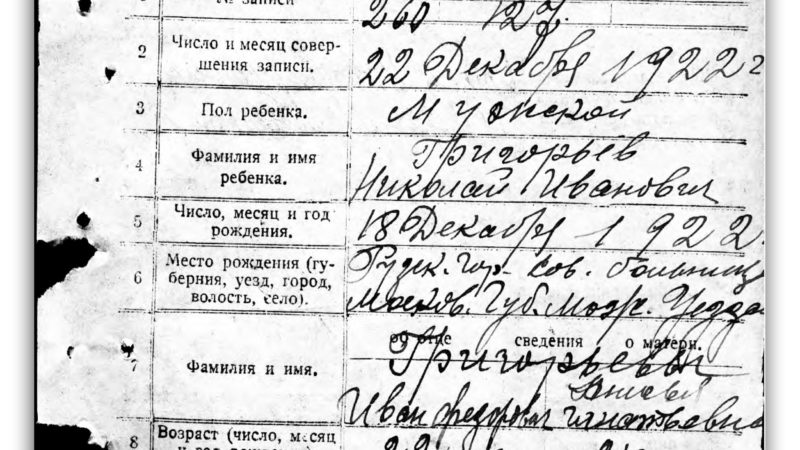 № записи
260 127.
2 Число и месяц совер-
шения записи.
22 Декабря 1922 г
3 Пол ребенка.
Мужской
4 Фамилия и имя
ребенка.
Григорьев
Николай Иванович
5 Число, месяц и год
рождения.
18 Декабря 1922.
6 Место рождения (гу-
берния, уезд, город,
волость, село).
гор. Сов. больница
Москов. Губ. Можр. Уезда
об отце сведения о матери.
7 Фамилия и имя.
Григорьевы
Иван Федорович Игнатьевна
8 Возраст (число, месяц